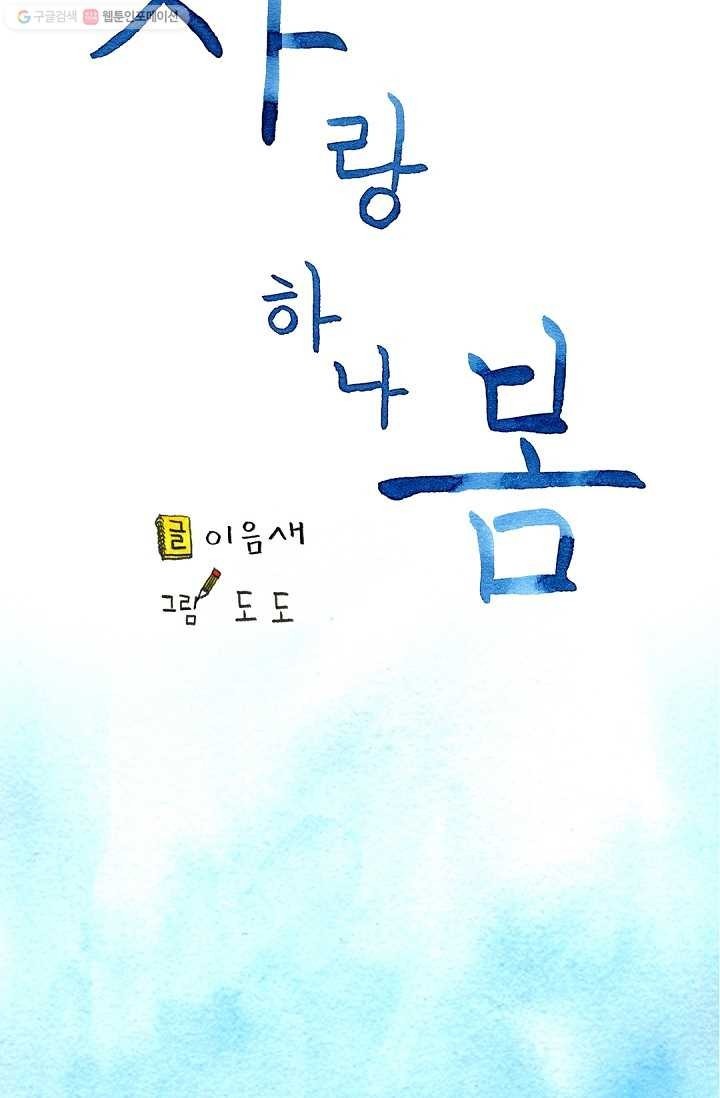 구글검색 웹툰인포메이션
사랑
하나
봄
글 이음새
그림 도도